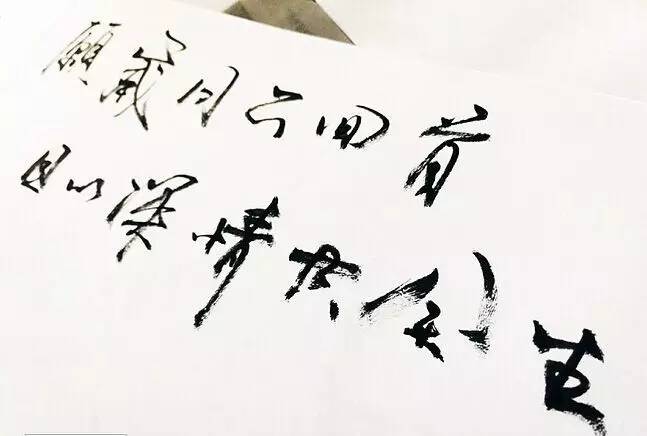 願歲月可回首
且以深情共餘生